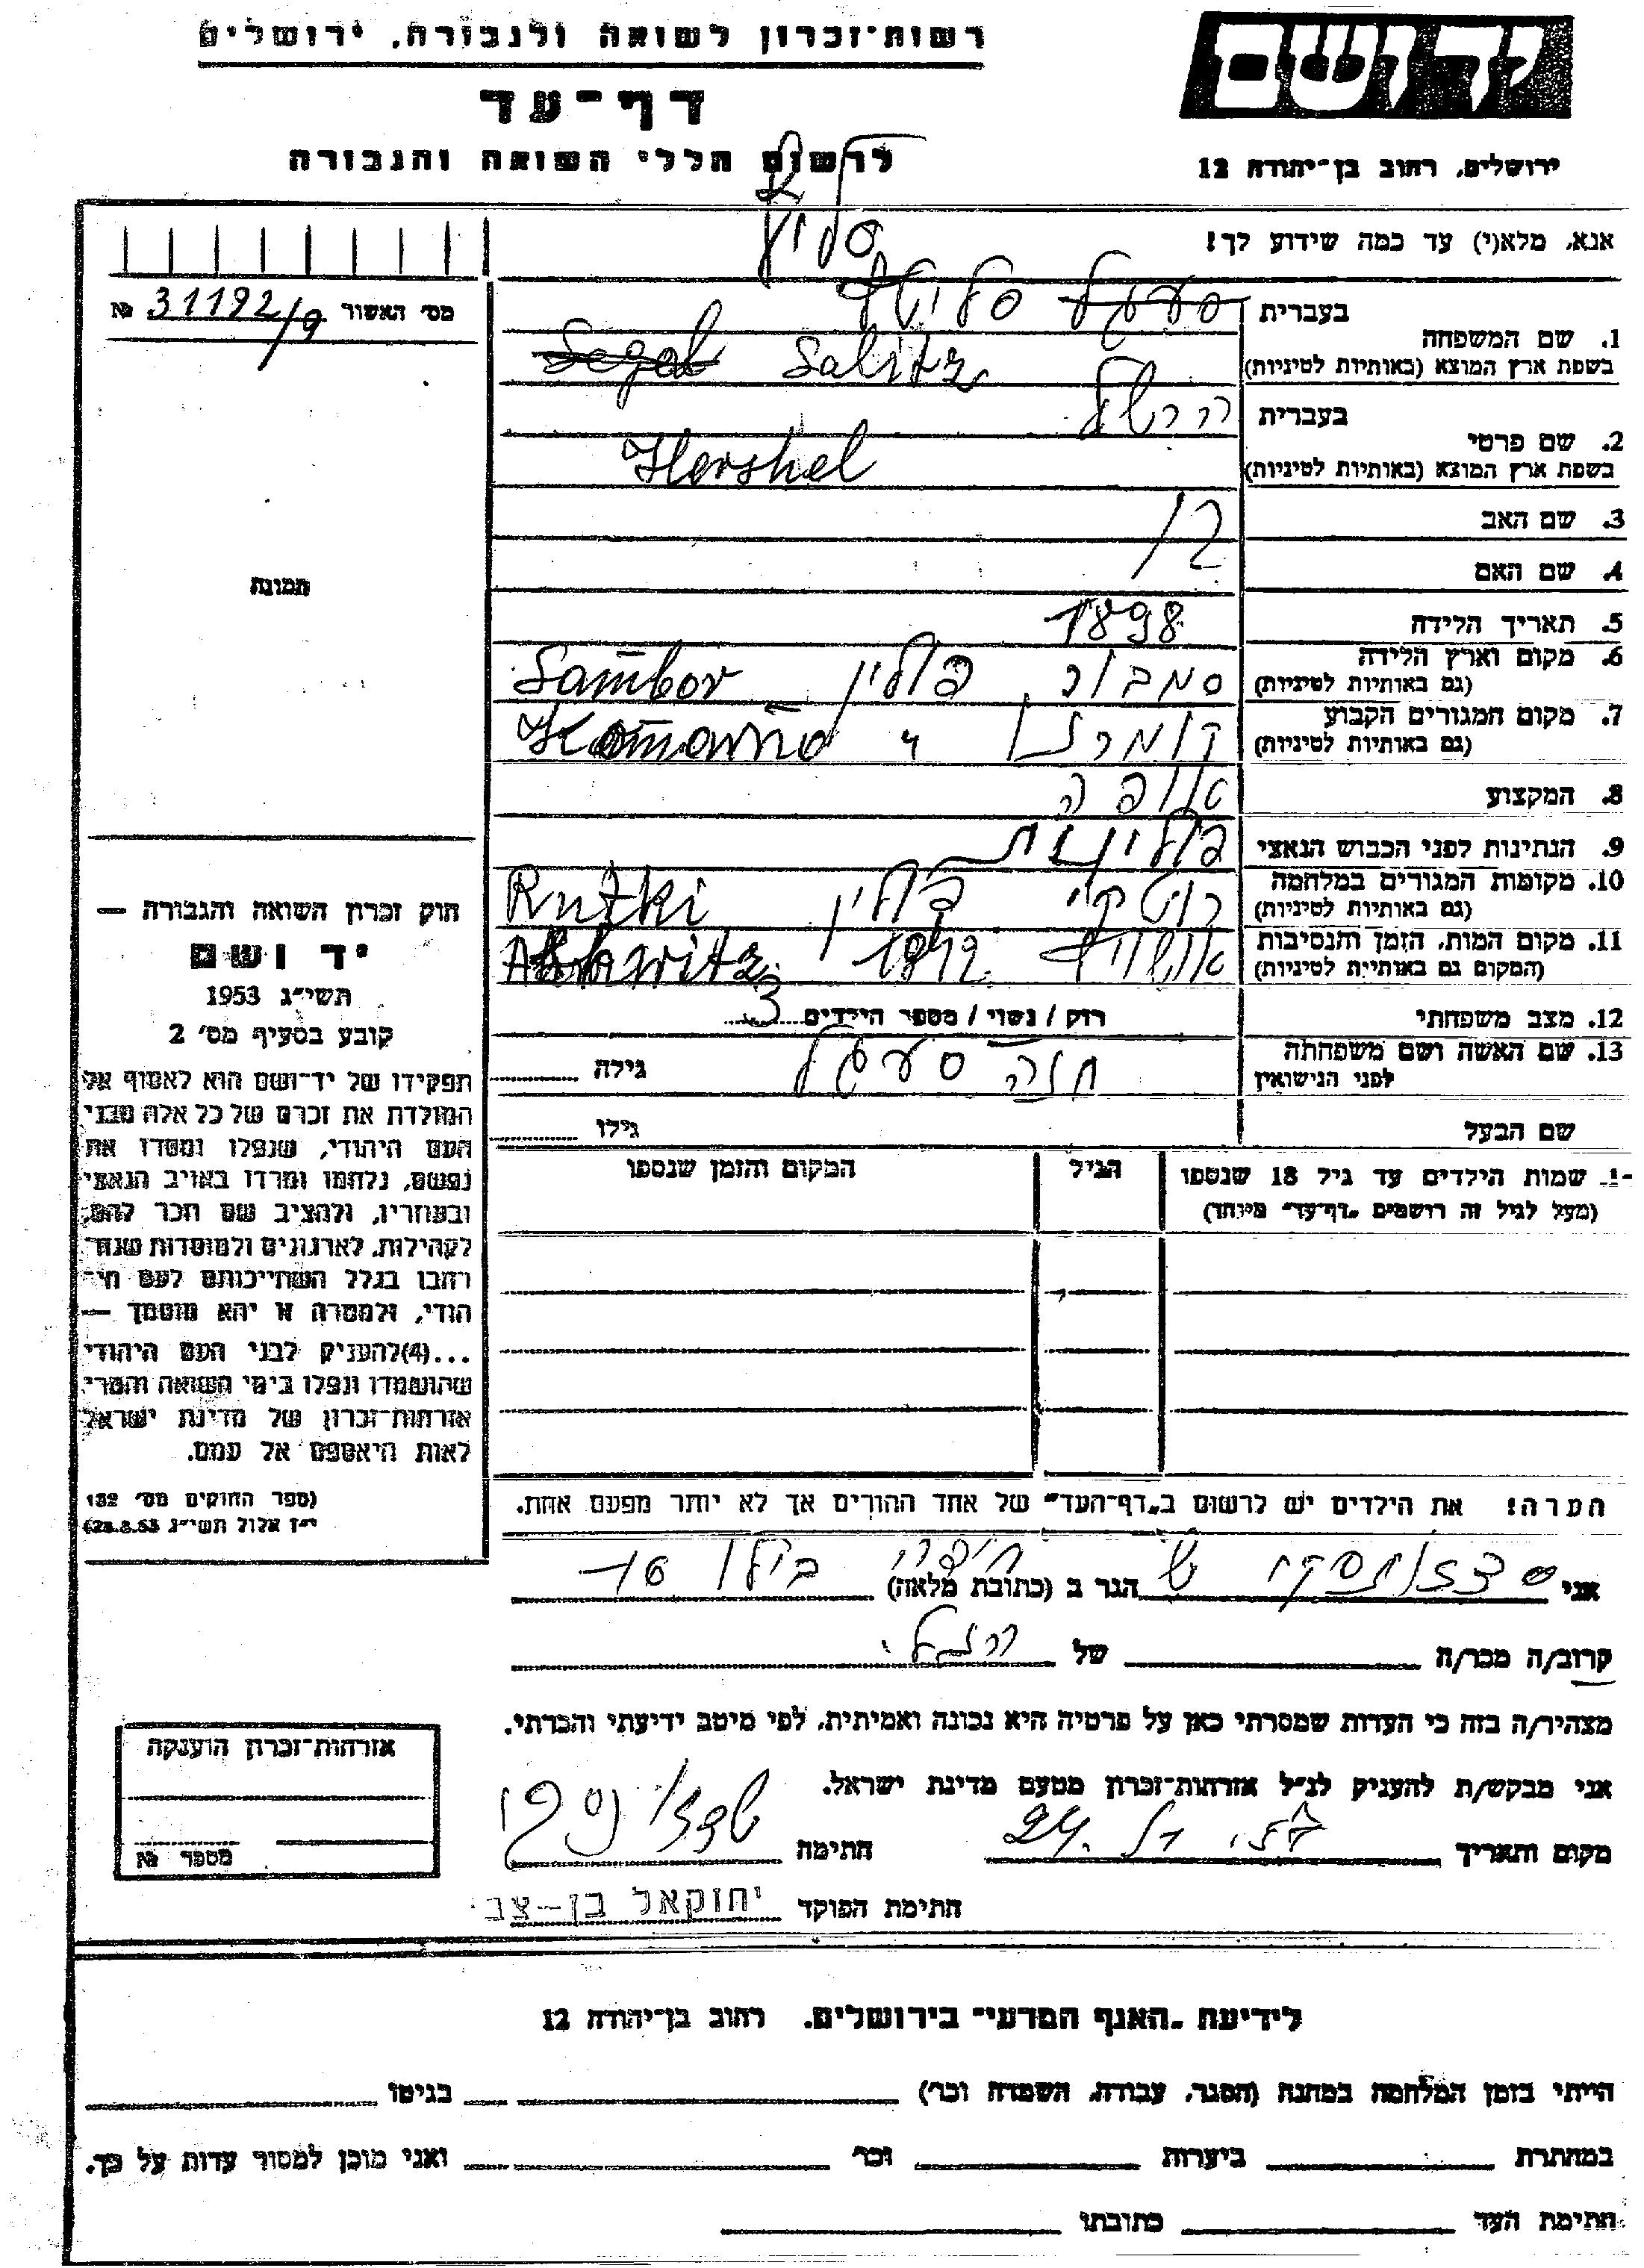 רשות־זכרון לשואה ולגבורה, ירושלים
יד ושם
דף־עד
לרשום חללי השואה והגבורה
ירושלים, רחוב בן־יהודה 12
אנא, מלא(י) עד כמה שידוע לך!
סליץ
מס׳ האשור 31192/9 №
1. שם המשפחה
בעברית סעגל סליטץ
בשפת ארץ המוצא (באותיות לטיניות) Segal Salitz
2. שם פרטי
בעברית הרשל
בשפת ארץ המוצא (באותיות לטיניות) Hershel
3. שם האב
4. שם האם
תמונה
5. תאריך הלידה 1898
6. מקום וארץ הלידה סמבור פולין Sambor
(גם באותיות לטיניות)
7. מקום המגורים הקבוע קומרנו Komarno
(גם באותיות לטיניות)
8. המקצוע אופה
9. הנתינות לפני הכבוש הנאצי פולינית
10. מקומות המגורים במלחמה רוטקי פולין Rutki
(גם באותיות לטיניות)
11. מקום המות, הזמן והנסיבות אושויץ 1942
(המקום גם באותיות לטיניות)
12. מצב משפחתי רווק / נשוי / מספר הילדים 3
13. שם האשה ושם משפחתה חנה סעגל גילה
לפני הנישואין
שם הבעל גילו
שמות הילדים עד גיל 18 שנספו הגיל המקום והזמן שנספו
(מעל לגיל זה רושמים „דף־עד״ מיוחד)
הערה! את הילדים יש לרשום ב„דף־העד״ של אחד ההורים אך לא יותר מפעם אחת.
חוק זכרון השואה והגבורה —
יד ושם
תשי״ג 1953
קובע בסעיף מס׳ 2
תפקידו של יד־ושם הוא לאסוף אל
המולדת את זכרם של כל אלה מבני
העם היהודי, שנפלו ומסרו את
נפשם, נלחמו ומרדו באויב הנאצי
ובעוזריו, ולהציב שם וזכר להם,
לקהילות, לארגונים ולמוסדות שנח־
רבו בגלל השתייכותם לעם הי־
הודי, ולמטרה זו יהא מוסמך —
...(4)להעניק לבני העם היהודי
שהושמדו ונפלו בימי השואה והמרי
אזרחות־זכרון של מדינת ישראל
לאות היאספם אל עמם.
(ספר החוקים מס׳ 132
י״ז אלול תשי״ג 28.8.53)
אני הגר ב (כתובת מלאה) חיפה
קרוב/ה מכר/ה של
מצהיר/ה בזה כי העדות שמסרתי כאן על פרטיה היא נכונה ואמיתית, לפי מיטב ידיעתי והכרתי.
אני מבקש/ת להעניק לנ״ל אזרחות־זכרון מטעם מדינת ישראל.
מקום ותאריך חתימה
חתימת הפוקד יחזקאל בן-צבי
אזרחות־זכרון הוענקה
מספר №
לידיעת „האגף המדעי״ בירושלים, רחוב בן־יהודה 12
הייתי בזמן המלחמה במחנה (הסגר, עבודה, השמדה וכו׳) בגיטו
במחתרת ביערות וכו׳ ואני מוכן למסור עדות על כך.
חתימת העד כתובתו